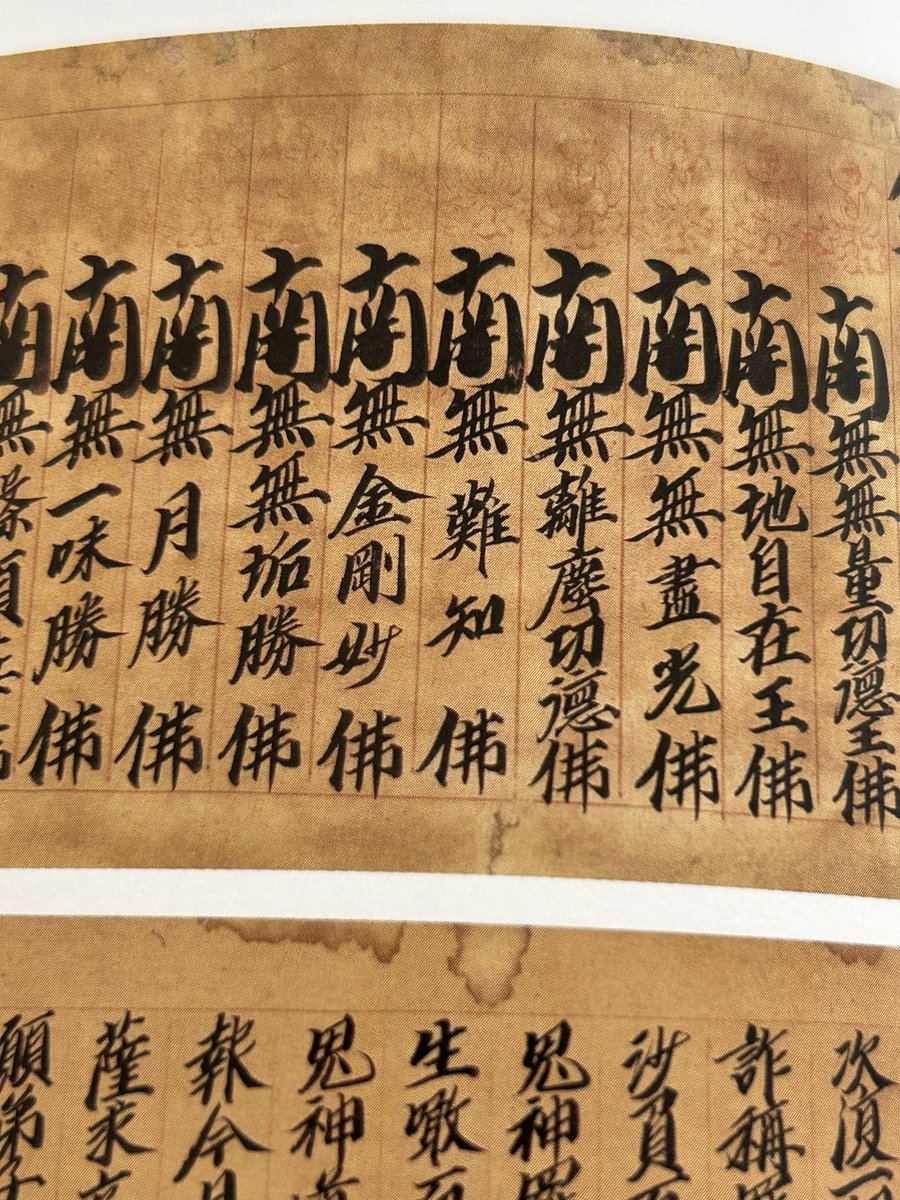 南無無量功德王佛
南無地自在王佛
南無無盡光佛
南無離塵功德佛
南無難知佛
南無金剛妙佛
南無無垢勝佛
南無月勝佛
南無一味勝佛
南無
次復
詐稱
沙
鬼神
生噉
鬼神
報今
薩求
願弟子